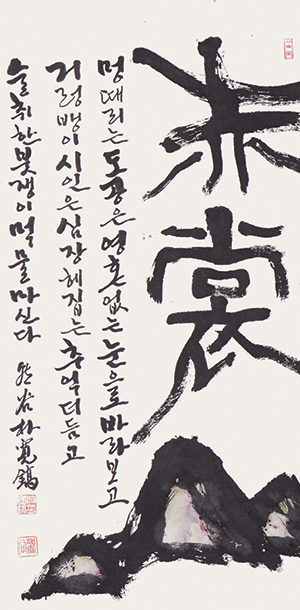 赤裳
멍때리는 도공은 영혼없는 눈으로 바라보고
거렁뱅이 시인은 심장헤집는 추억더듬고
술취한 붓쟁이 먹물마신다
谷 朴寬鎬